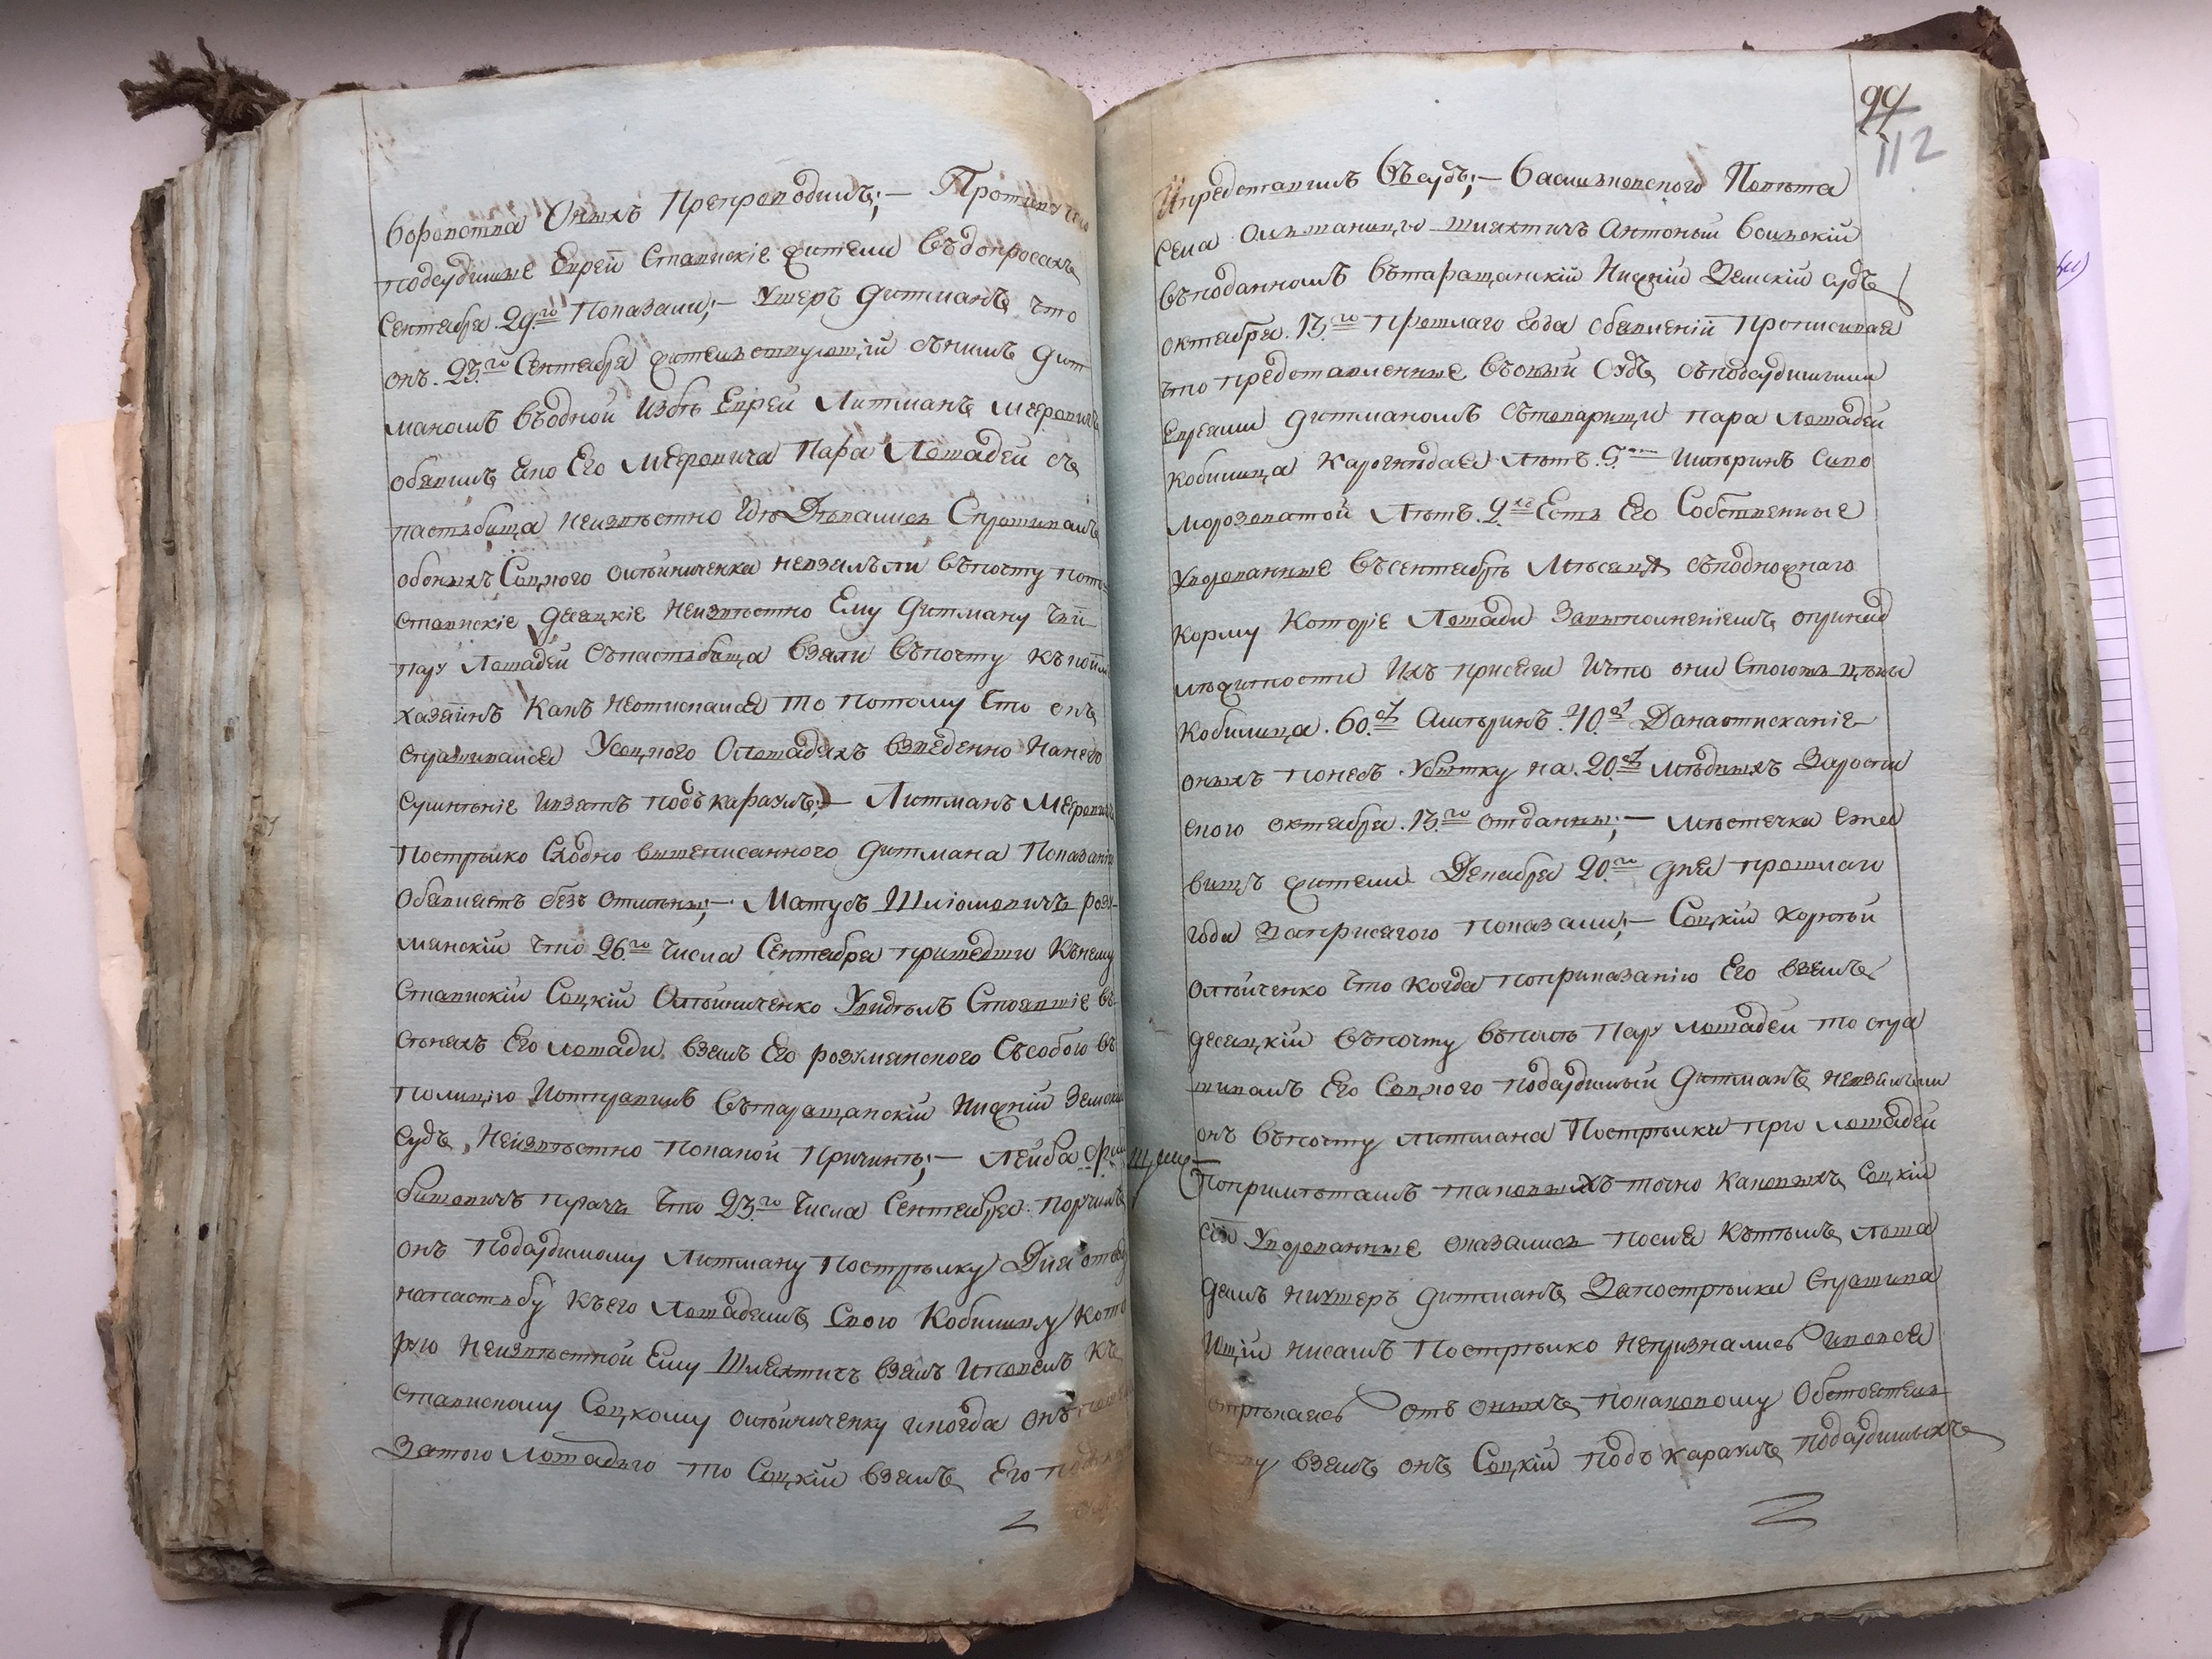 воровства Оныхъ Препроводилъ; — Противу чего
подсудимые Евреи Ставискіе жители въдопросахъ
Сентября 29.го показали; — Ушеръ Дитманъ, что
онъ 23.го Сентября жительствующій сънимъ Дит
маномъ въодной избѣ Еврей Литманъ Мееровичъ
обявилъ ево Его Мееровича пара Лошадей съ
пастьбища неизвѣстно гдѣ Дѣвались Спрашивалъ
обоныхъ Соцкого олѣйниченка невзялъ ли въпочту пото
Ставискіе десяцкіе неизвѣстно Ему Дитману чіи
пару Лошадей съпастьбища взяли въпочту къкоим
хазяинъ какъ неотискался то потому что онъ
спрашивался Усоцкого Олошадяхъ взведенно нанего
сумнѣніе ивзятъ подъ караулъ; — Литманъ Мееровичъ
Пострѣлко Сходно вышеписанного Дитмана Показанію
Обявляетъ безъ отмѣны; — Матусъ Шліомовичъ розу-
манскій что 26.го числа Сентября пришедши Кънему
Ставискій Соцкій Олѣйниченко Увидѣлъ Стоявшіе въ
стѣнахъ Его лошади взялъ Его розуманского Съсобою въ
полицію Иотправилъ вътаращанскій Нижній Земскій
Судъ, Неизвѣстно покакой Причинѣ; — Лейба
бишовичъ ткачъ что 23.го числа Сентября поручилъ
онъ подсудимому Литману Пострѣлку Для отводу
напастьбу къего Лошадямъ, Свою Кобилицу кото
рую Неизвѣстной Ему Шляхтичъ взялъ Иповелъ къ
Ставискому Соцкому олѣйниченку икогда онъ пошолъ
Затою Лошадью то Соцкій взялъ, Его подъ ка
99
112
Ипредставилъ въсудъ; — Василковского Повѣта
Села Олшаницы шляхтичъ Антоній Волскій
въподанномъ вътаращанскій Нижній Земскій судъ
октября 13.го Прошлаго года обявленій Прописивая
что представленные въоный Судъ, съподсудимыми
Евреями Дитманомъ Стовариши пара Лошадей
Кобилица Карогнѣдая лѣтъ 5. Имѣринъ Сиво
морозоватой Лѣтъ 9. Есть Его Собственные
Уворованные въсентябрѣ Мѣсяцѣ съподножнаго
корму Которіе Лошади Завыполненіемъ опринад
лѣжности Ихъ присяги Ичто они Стоютъ цѣны
Кобилица 60. Амѣринъ 40. Данаотисканіе
оныхъ понесъ Убытку на 20. мѣдныхъ Зароспи
скою октября 13.го отданны; — мѣстечка
вищъ жители Декабря 20.го дня прошлаго
года Заприсягою показали; — Соцкій корнѣй
Олѣйченко что когда поприказанію Его взялъ
десяцкій въпочту въполѣ Пару лошадей то спра
шивалъ Его Соцкого подсудимый Дитманъ, невзялъли
онъ въпочту литмана Пострѣлки при лошадей
Поприметамъ таковыхъ точно каковыхъ Соцкій
сіи Уворованные оказались после кътѣмъ лоша
дямъ ниушеръ Дитманъ, Запострѣлки Спрашива
ющій нисамъ Пострѣлко непризнались ивовся
отрѣкались отъ оныхъ, потаковому Обстоятель
взялъ онъ Соцкій подъ караулъ подсудимыхъ